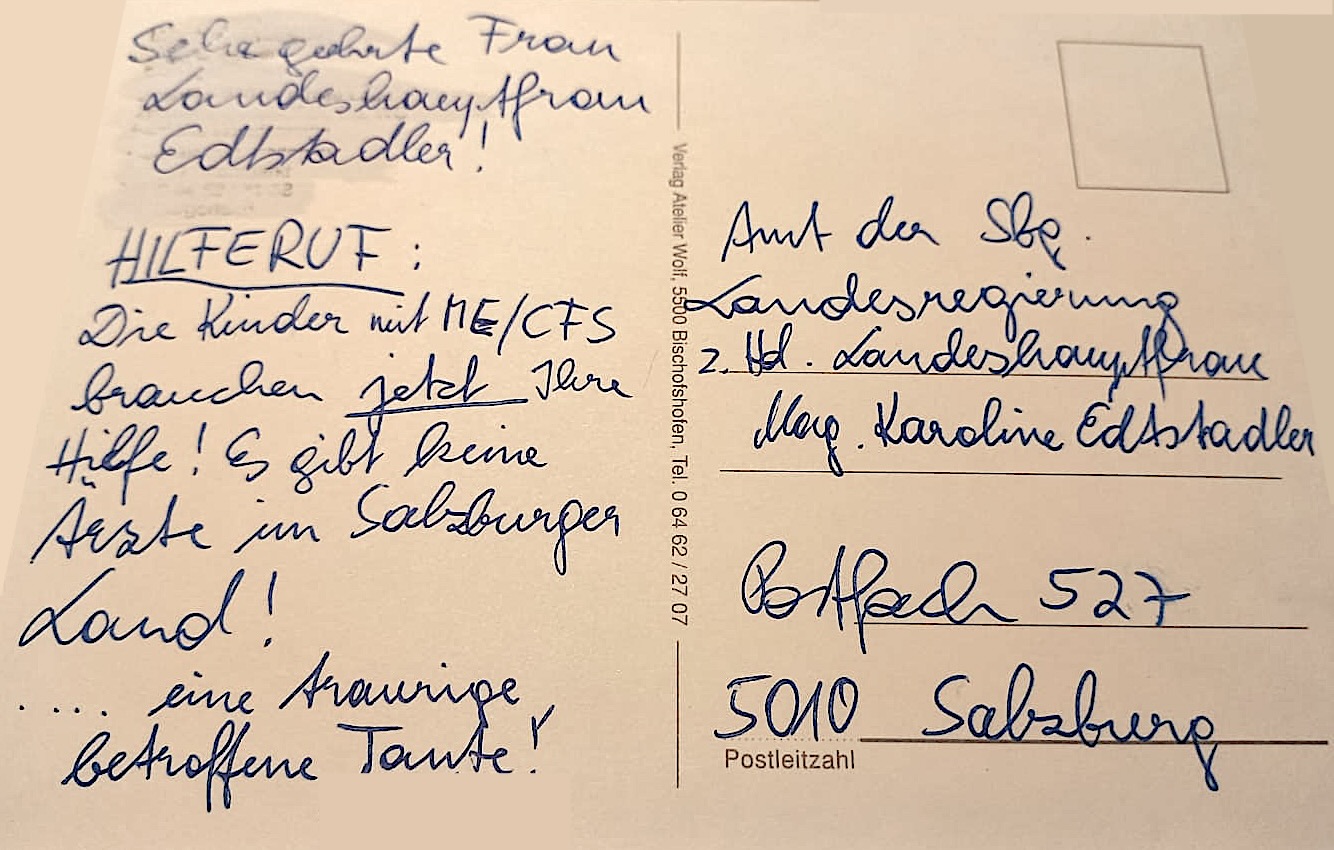 Sehr geehrte Frau
Landeshauptfrau
Edtstadler!
HILFERUF:
Die Kinder mit ME/CFS
brauchen jetzt Ihre
Hilfe! Es gibt keine
Ärzte im Salzburger
Land!
.... eine traurige
betroffene Tante!
Verlag Atelier Wolf, 5500 Bischofshofen, Tel. 0 64 62 / 27 07
Amt der Sbg.
Landesregierung
z. Hd. Landeshauptfrau
Mag. Karoline Edtstadler
Postfach 527
5010 Salzburg
Postleitzahl